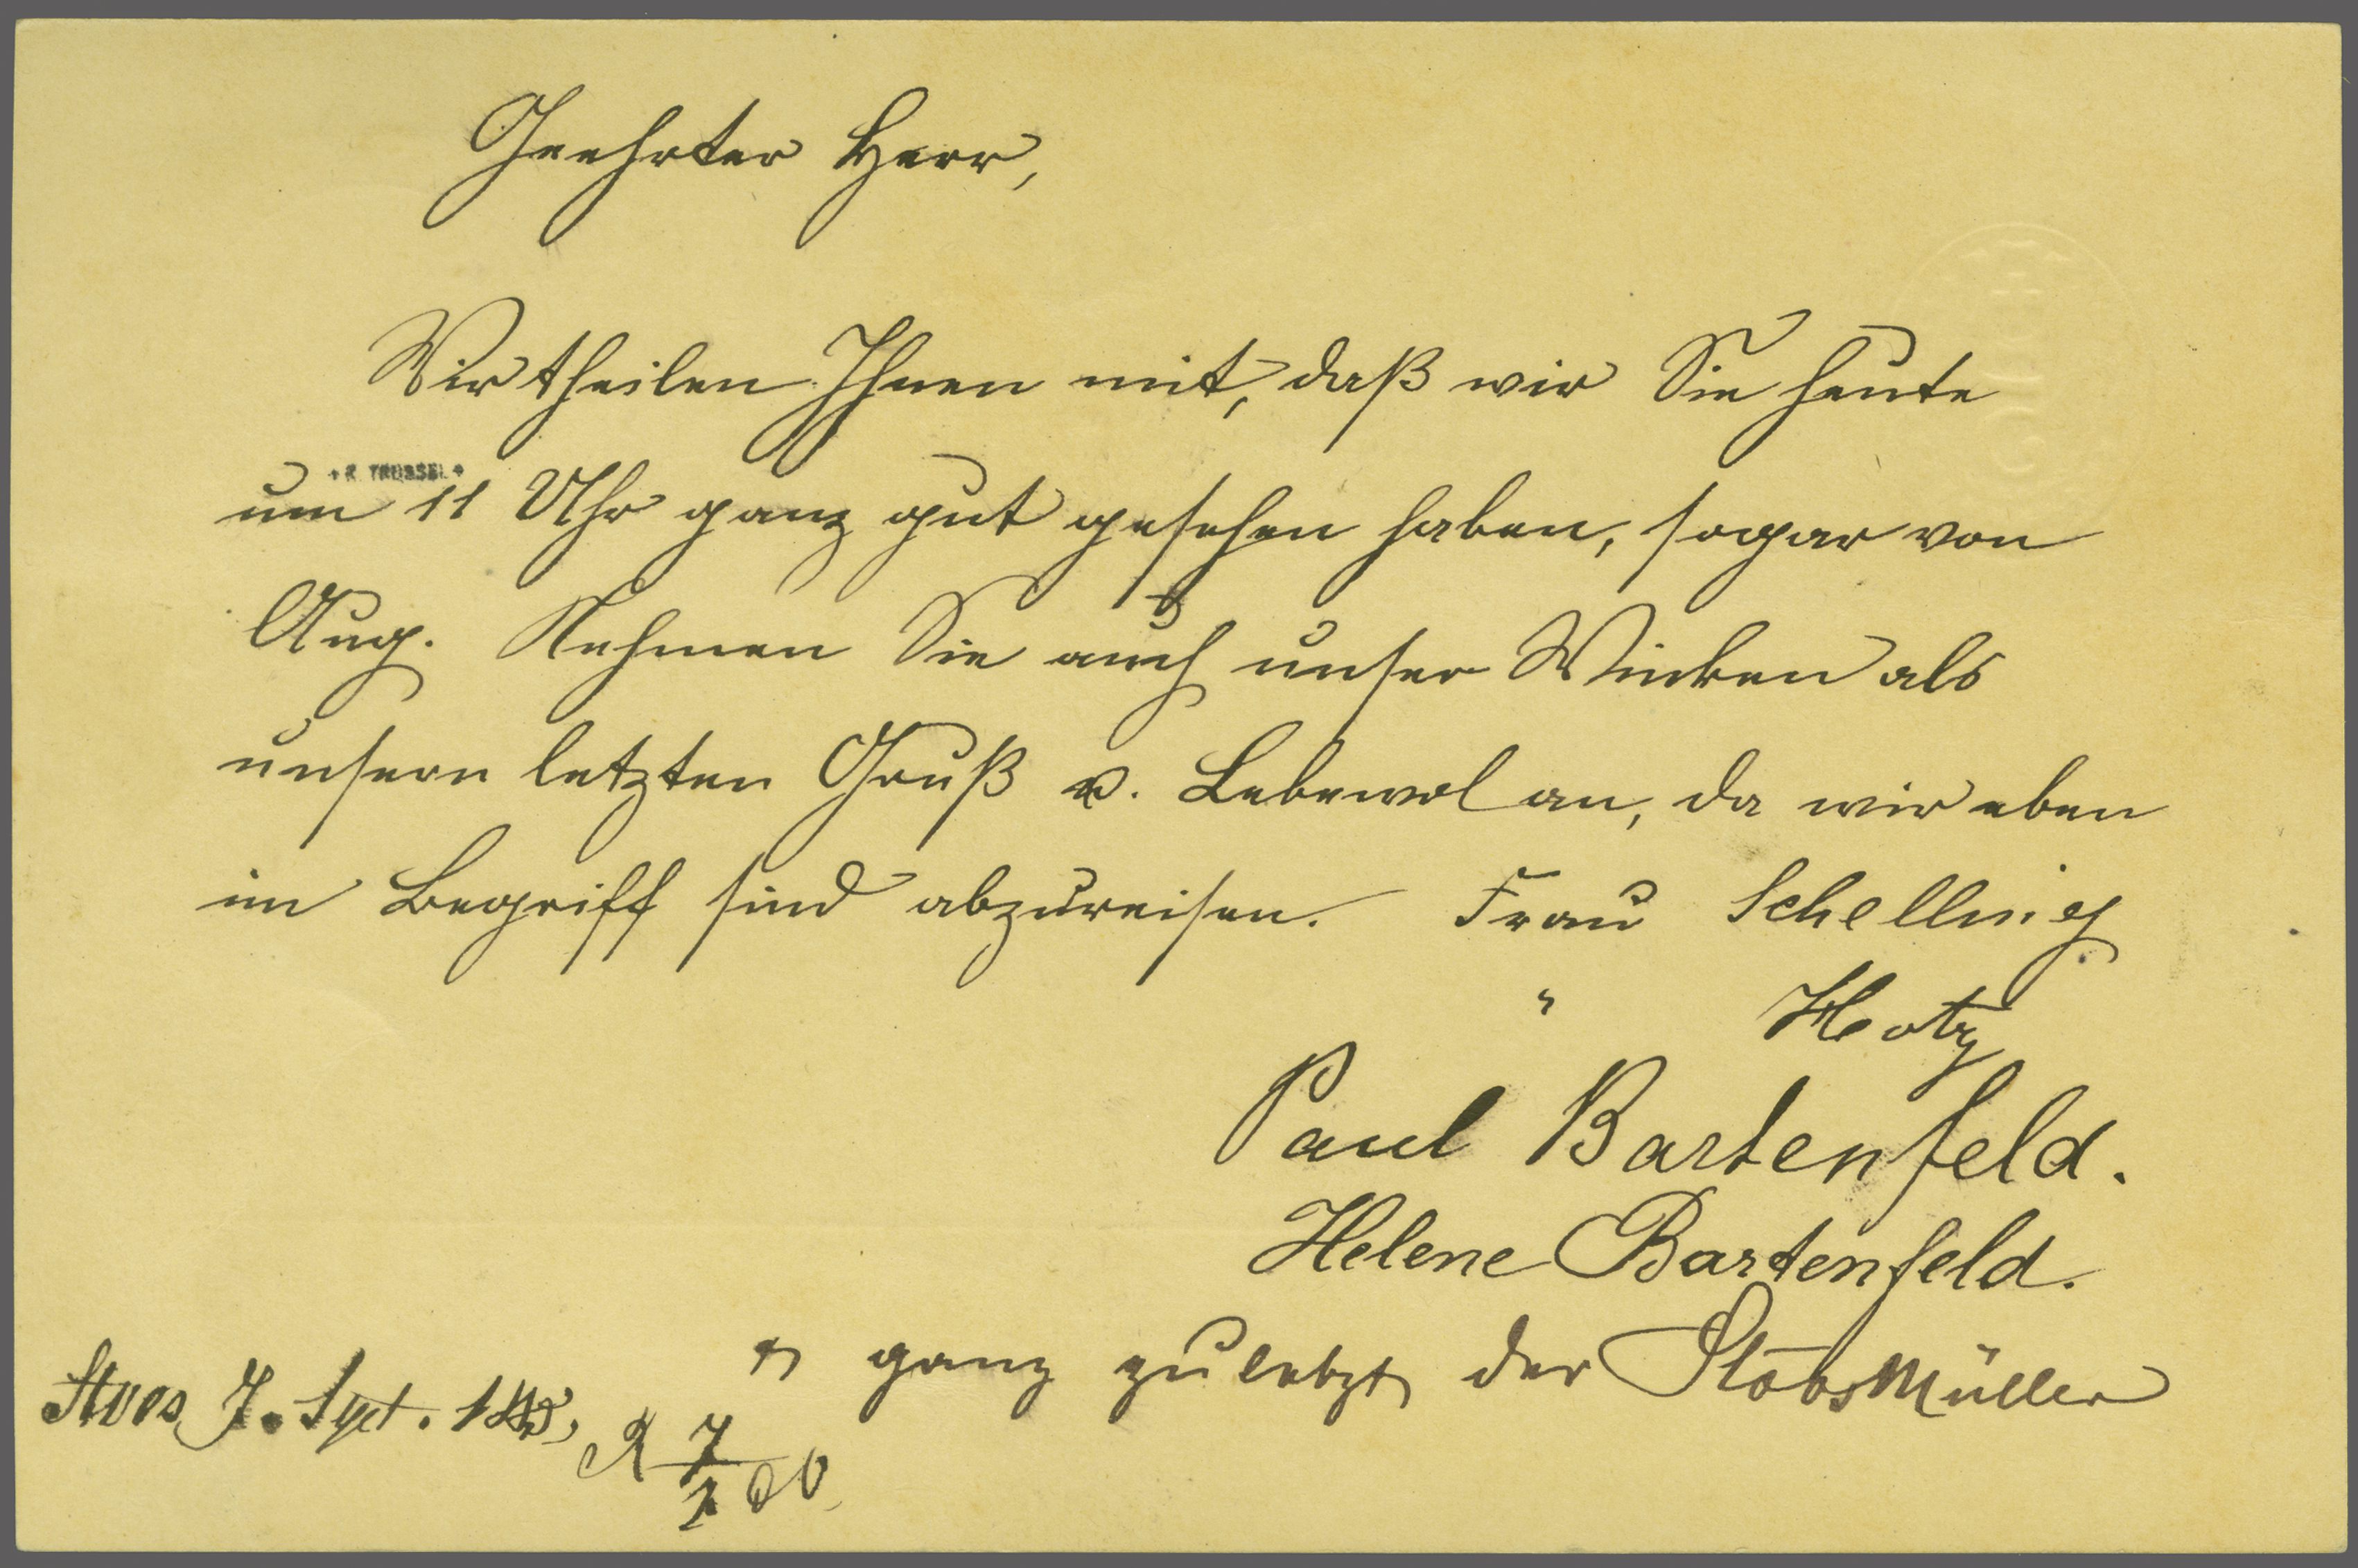 Geehrter Herr,
Wir theilen Ihnen mit, daß wir Sie heute
+ R TRÜSSEL +
um 11 Uhr ganz gut gesehen haben, sogar von
Aug. Nehmen Sie auch unser Winken als
unsern letzten Gruß u. Lebewol an, da wir eben
im Begriff sind abzureisen. Frau Schelling
" Hotz
Paul Bartenfeld.
Helene Bartenfeld.
ganz zuletzt der Stoosmüller
Stoos 7. Sept.
R 7